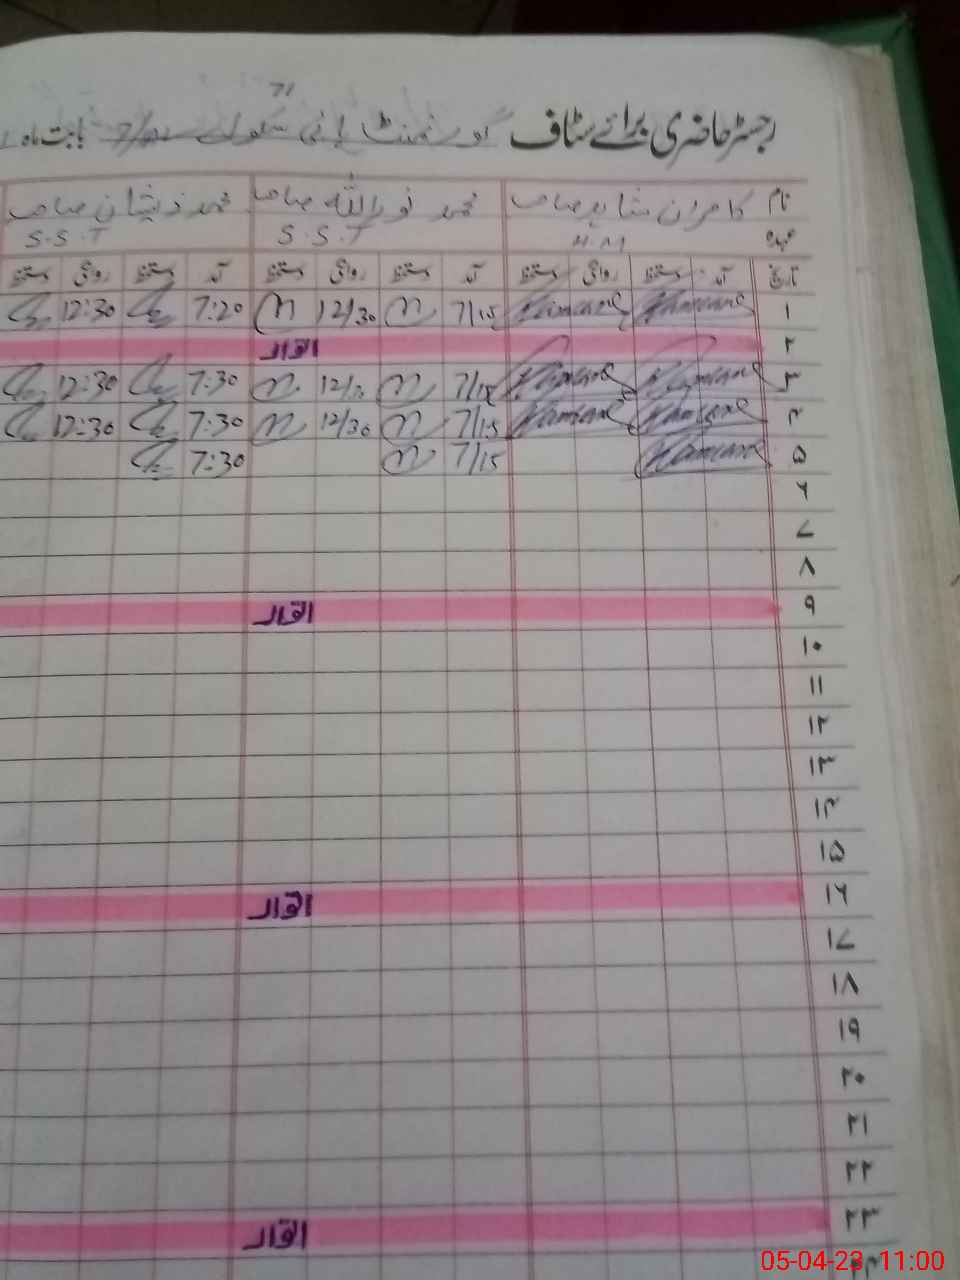 71
رجسٹر حاضری برائے سٹاف گورنمنٹ ہائی سکول بابت ماہ
نام کامران شاہد صاحب محمد نوراللہ صاحب محمد ذیشان صاحب
عہدہ H.M S.S.T S.S.T
تاریخ آمد دستخط روانگی دستخط آمد دستخط روانگی دستخط آمد دستخط روانگی دستخط
۱ Kamran Kamran 7/15 12/30 7:20 12:30
۲ اتوار
۳ Kamran Kamran 7/15 7:30 12:30
۴ Kamran Kamran 7/15 12/30 7:30 12:30
۵ Kamran 7/15 7:30
۶
۷
۸
۹ اتوار
۱۰
۱۱
۱۲
۱۳
۱۴
۱۵
۱۶ اتوار
۱۷
۱۸
۱۹
۲۰
۲۱
۲۲
۲۳ اتوار
05-04-23 11:00